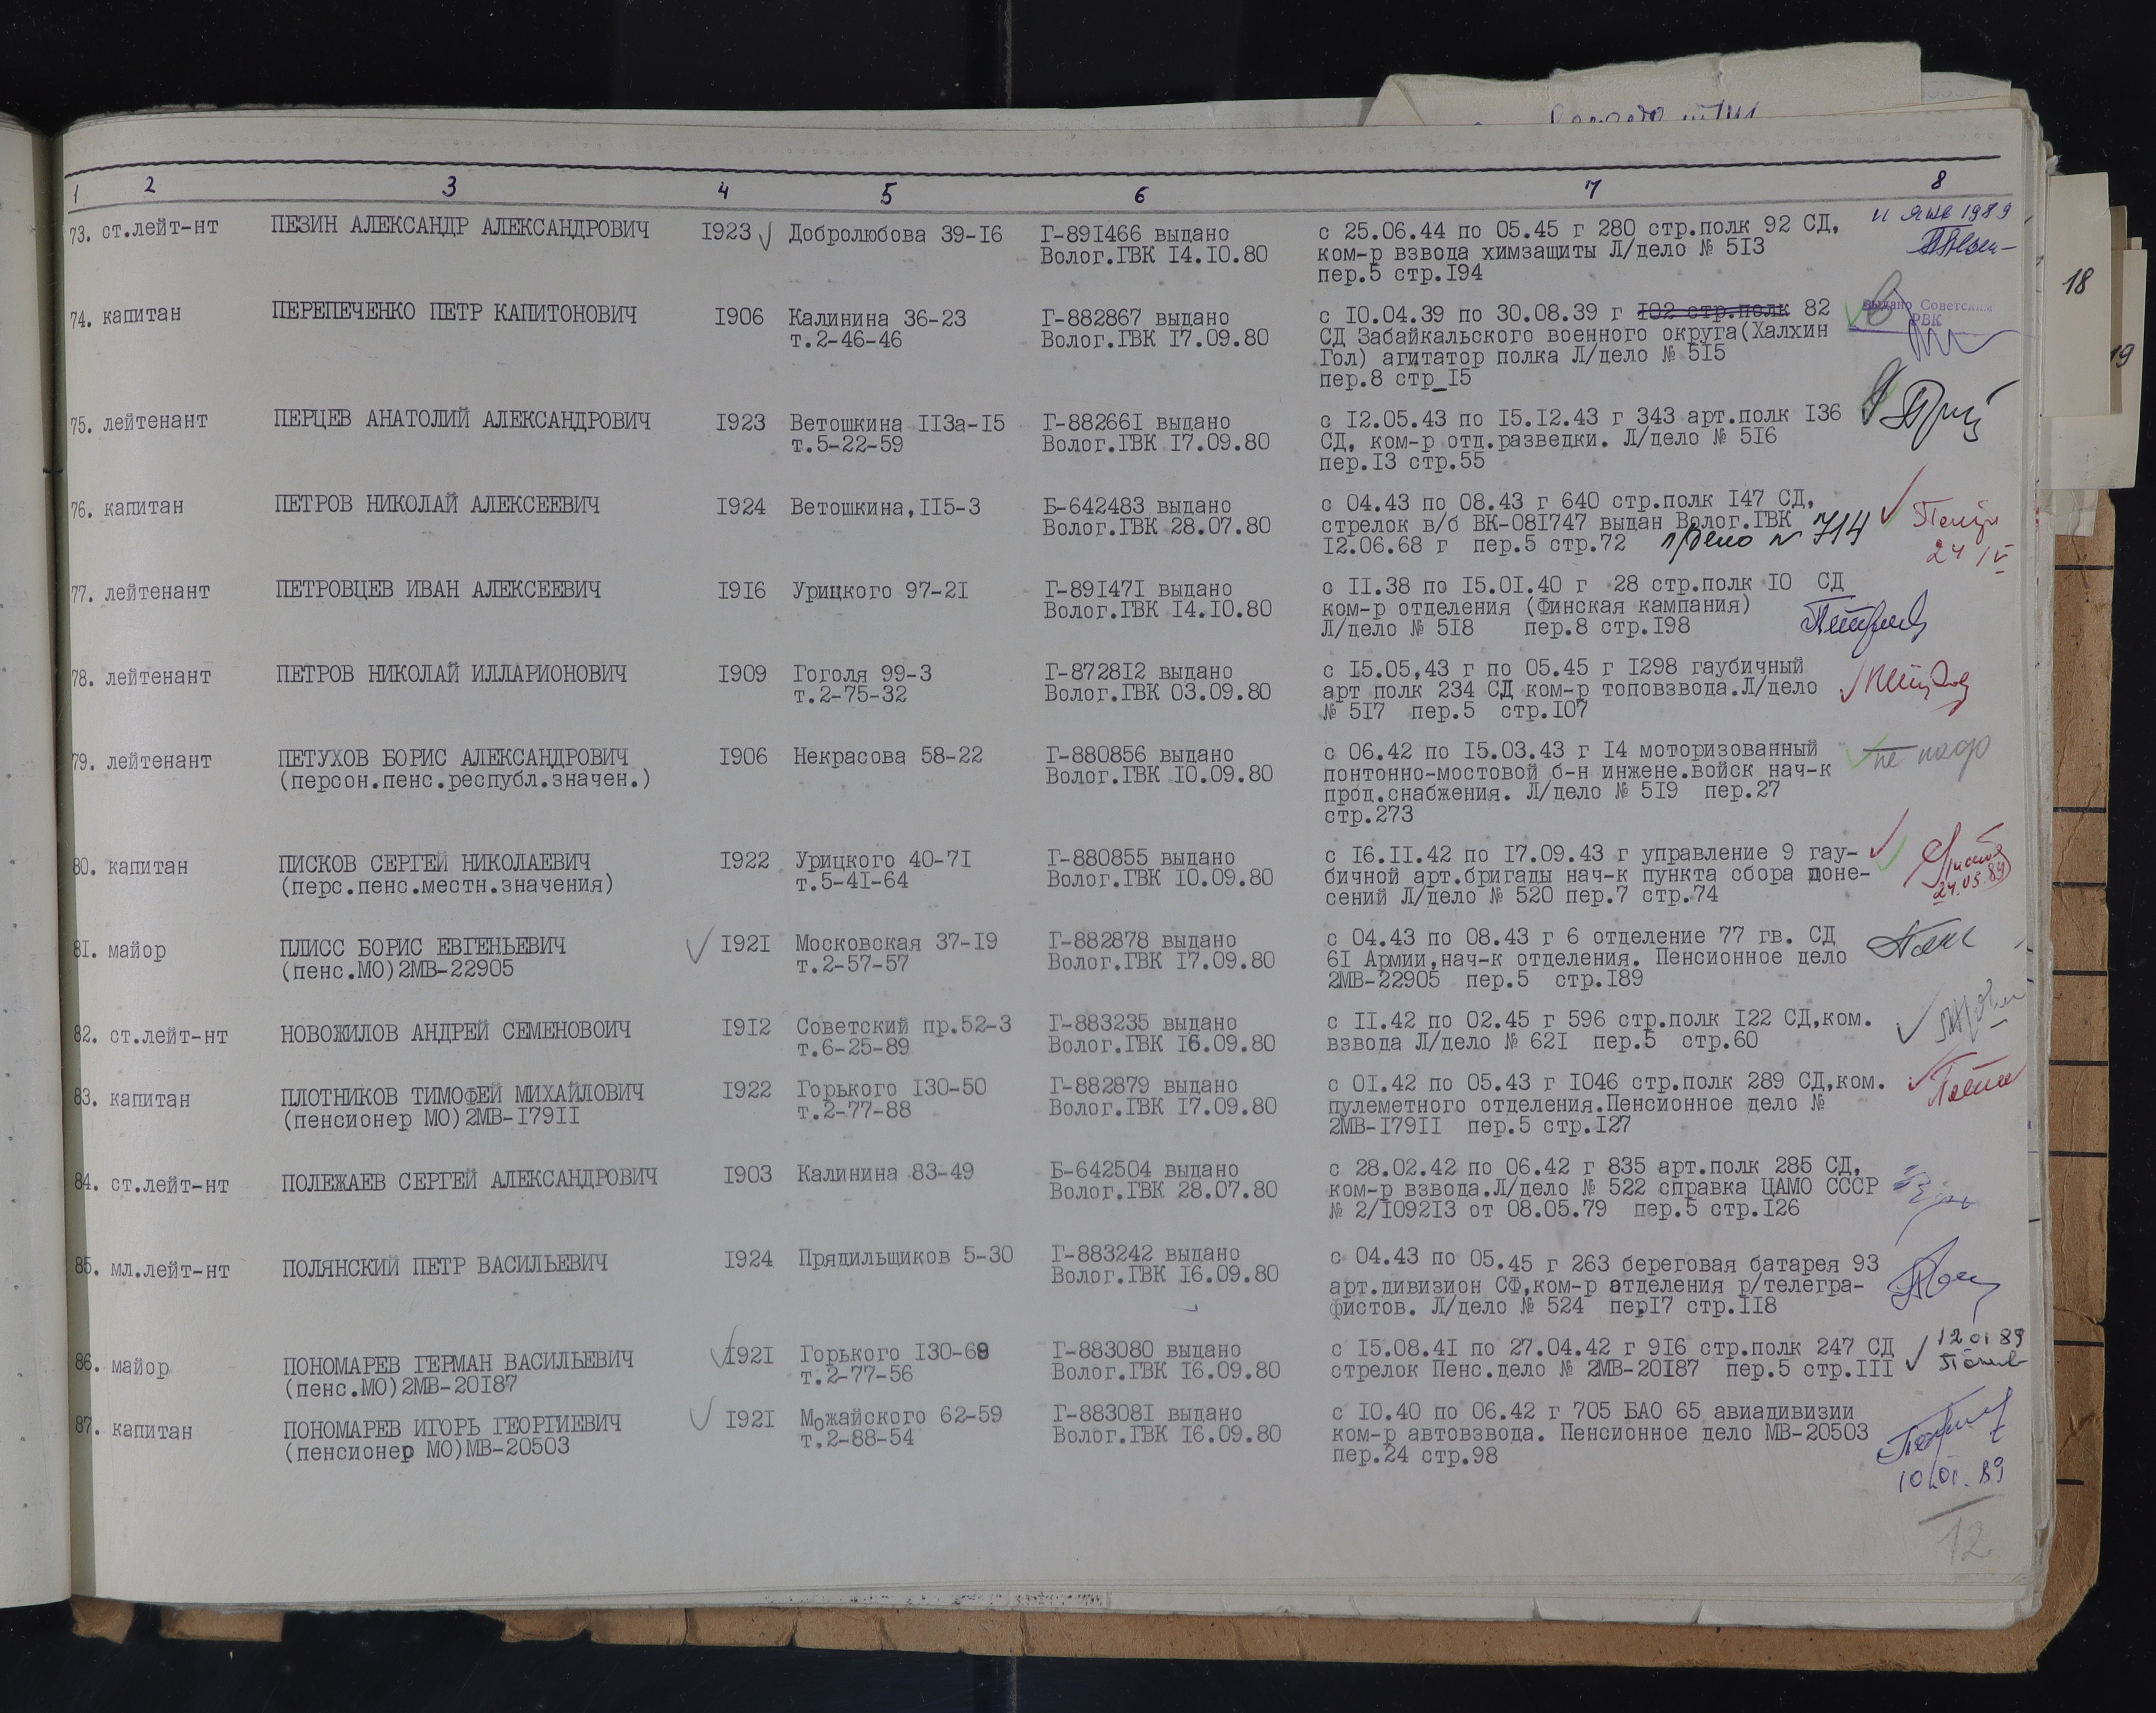 1 2 3 4 5 6 7 8
73. ст.лейт-нт ПЕЗИН АЛЕКСАНДР АЛЕКСАНДРОВИЧ I923 Добролюбова 39-I6 Г-89I466 выдано с 25.06.44 по 05.45 г 280 стр.полк 92 СД, 1989
Волог.ГВК I4.I0.80 ком-р взвода химзащиты Л/дело № 5I3
пер.5 стр.I94
74. капитан ПЕРЕПЕЧЕНКО ПЕТР КАПИТОНОВИЧ I906 Калинина 36-23 Г-882867 выдано с I0.04.39 по 30.08.39 г I02 стр.полк 82 Выдано Советским
т.2-46-46 Волог.ГВК I7.09.80 СД Забайкальского военного округа(Халхин РВК
Гол) агитатор полка Л/дело № 5I5
пер.8 стр_I5
75. лейтенант ПЕРЦЕВ АНАТОЛИЙ АЛЕКСАНДРОВИЧ I923 Ветошкина II3а-I5 Г-88266I выдано с I2.05.43 по I5.I2.43 г 343 арт.полк I36
т.5-22-59 Волог.ГВК I7.09.80 СД, ком-р отд.разведки. Л/дело № 5I6
пер.I3 стр.55
76. капитан ПЕТРОВ НИКОЛАЙ АЛЕКСЕЕВИЧ I924 Ветошкина,II5-3 Б-642483 выдано с 04.43 по 08.43 г 640 стр.полк I47 СД,
Волог.ГВК 28.07.80 стрелок в/б ВК-08I747 выдан Волог.ГВК
I2.06.68 г пер.5 стр.72 л/дело № 714 24 IV
77. лейтенант ПЕТРОВЦЕВ ИВАН АЛЕКСЕЕВИЧ I9I6 Урицкого 97-2I Г-89I47I выдано с II.38 по I5.0I.40 г 28 стр.полк I0 СД
Волог.ГВК I4.I0.80 ком-р отделения (Финская кампания)
Л/дело № 5I8 пер.8 стр.I98
78. лейтенант ПЕТРОВ НИКОЛАЙ ИЛЛАРИОНОВИЧ I909 Гоголя 99-3 Г-8728I2 выдано с I5.05,43 г по 05.45 г I298 гаубичный
т.2-75-32 Волог.ГВК 03.09.80 арт полк 234 СД ком-р топовзвода.Л/дело
№ 5I7 пер.5 стр.I07
79. лейтенант ПЕТУХОВ БОРИС АЛЕКСАНДРОВИЧ I906 Некрасова 58-22 Г-880856 выдано с 06.42 по I5.03.43 г I4 моторизованный не надо
(персон.пенс.республ.значен.) Волог.ГВК I0.09.80 понтонно-мостовой б-н инжене.войск нач-к
прод.снабжения. Л/дело № 5I9 пер.27
стр.273
80. капитан ПИСКОВ СЕРГЕЙ НИКОЛАЕВИЧ I922 Урицкого 40-7I Г-880855 выдано с I6.II.42 по I7.09.43 г управление 9 гау-
(перс.пенс.местн.значения) т.5-4I-64 Волог.ГВК I0.09.80 бичной арт.бригады нач-к пункта сбора доне-
сений Л/дело № 520 пер.7 стр.74 24.05.89
8I. майор ПЛИСС БОРИС ЕВГЕНЬЕВИЧ I92I Московская 37-I9 Г-882878 выдано с 04.43 по 08.43 г 6 отделение 77 гв. СД
(пенс.МО)2МВ-22905 т.2-57-57 Волог.ГВК I7.09.80 6I Армии,нач-к отделения. Пенсионное дело
2МВ-22905 пер.5 стр.I89
82. ст.лейт-нт НОВОЖИЛОВ АНДРЕЙ СЕМЕНОВОИЧ I9I2 Советский пр.52-3 Г-883235 выдано с II.42 по 02.45 г 596 стр.полк I22 СД,ком.
т.6-25-89 Волог.ГВК I6.09.80 взвода Л/дело № 62I пер.5 стр.60
83. капитан ПЛОТНИКОВ ТИМОФЕЙ МИХАЙЛОВИЧ I922 Горького I30-50 Г-882879 выдано с 0I.42 по 05.43 г I046 стр.полк 289 СД,ком.
(пенсионер МО)2МВ-I79II т.2-77-88 Волог.ГВК I7.09.80 пулеметного отделения.Пенсионное дело №
2МВ-I79II пер.5 стр.I27
84. ст.лейт-нт ПОЛЕЖАЕВ СЕРГЕЙ АЛЕКСАНДРОВИЧ I903 Калинина 83-49 Б-642504 выдано с 28.02.42 по 06.42 г 835 арт.полк 285 СД,
Волог.ГВК 28.07.80 ком-р взвода.Л/дело № 522 справка ЦАМО СССР
№ 2/I092I3 от 08.05.79 пер.5 стр.I26
85. мл.лейт-нт ПОЛЯНСКИЙ ПЕТР ВАСИЛЬЕВИЧ I924 Прядильщиков 5-30 Г-883242 выдано с 04.43 по 05.45 г 263 береговая батарея 93
Волог.ГВК I6.09.80 арт.дивизион СФ,ком-р отделения р/телегра-
фистов. Л/дело № 524 пер17 стр.II8
86. майор ПОНОМАРЕВ ГЕРМАН ВАСИЛЬЕВИЧ I92I Горького I30-69 Г-883080 выдано с I5.08.4I по 27.04.42 г 9I6 стр.полк 247 СД 12 01 89
(пенс.МО)2МВ-20I87 т.2-77-56 Волог.ГВК I6.09.80 стрелок Пенс.дело № 2МВ-20I87 пер.5 стр.III
87. капитан ПОНОМАРЕВ ИГОРЬ ГЕОРГИЕВИЧ I92I Можайского 62-59 Г-88308I выдано с I0.40 по 06.42 г 705 БАО 65 авиадивизии
(пенсионер МО)МВ-20503 т.2-88-54 Волог.ГВК I6.09.80 ком-р автовзвода. Пенсионное дело МВ-20503
пер.24 стр.98
10.01.89
12
18
19